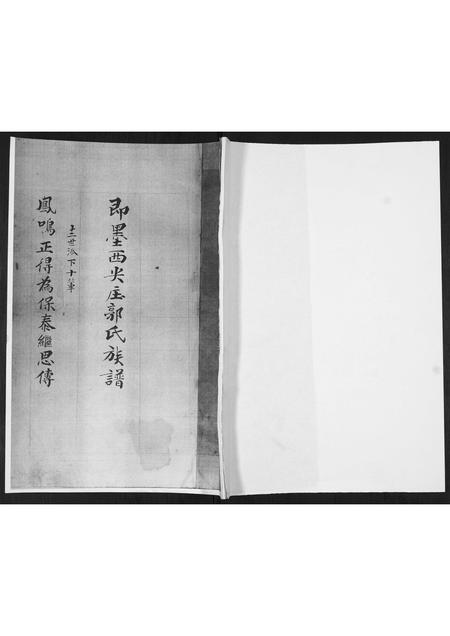 即墨西尖庄郭氏族譜
十三世派下十輩
鳳鳴正得為保泰繼思傳